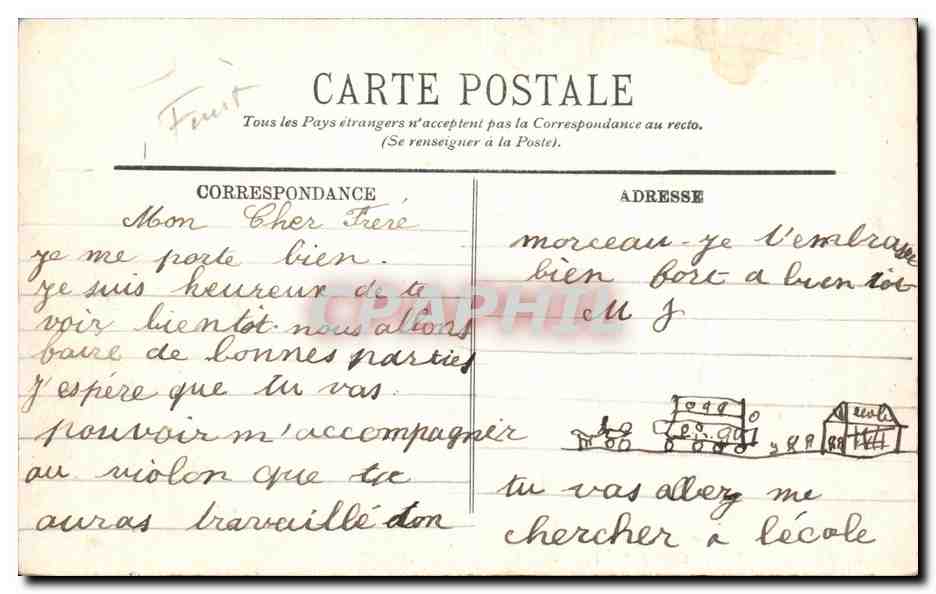 CARTE POSTALE
Tous les Pays étrangers n'acceptent pas la Correspondance au recto.
(Se renseigner à la Poste).
CORRESPONDANCE
Mon Cher Freré
je me porte bien.
je suis heureux de te
voir bientot. nous allons
faire de bonnes parties
j'espére que tu vas
pouvoir m'accompagner
au violon que tu
auras travaillé ton
ADRESSE
morceau - je t'embrasse
bien fort a bien tot
M J
école
tu vas allez me
chercher a lécole
CPAPHIL